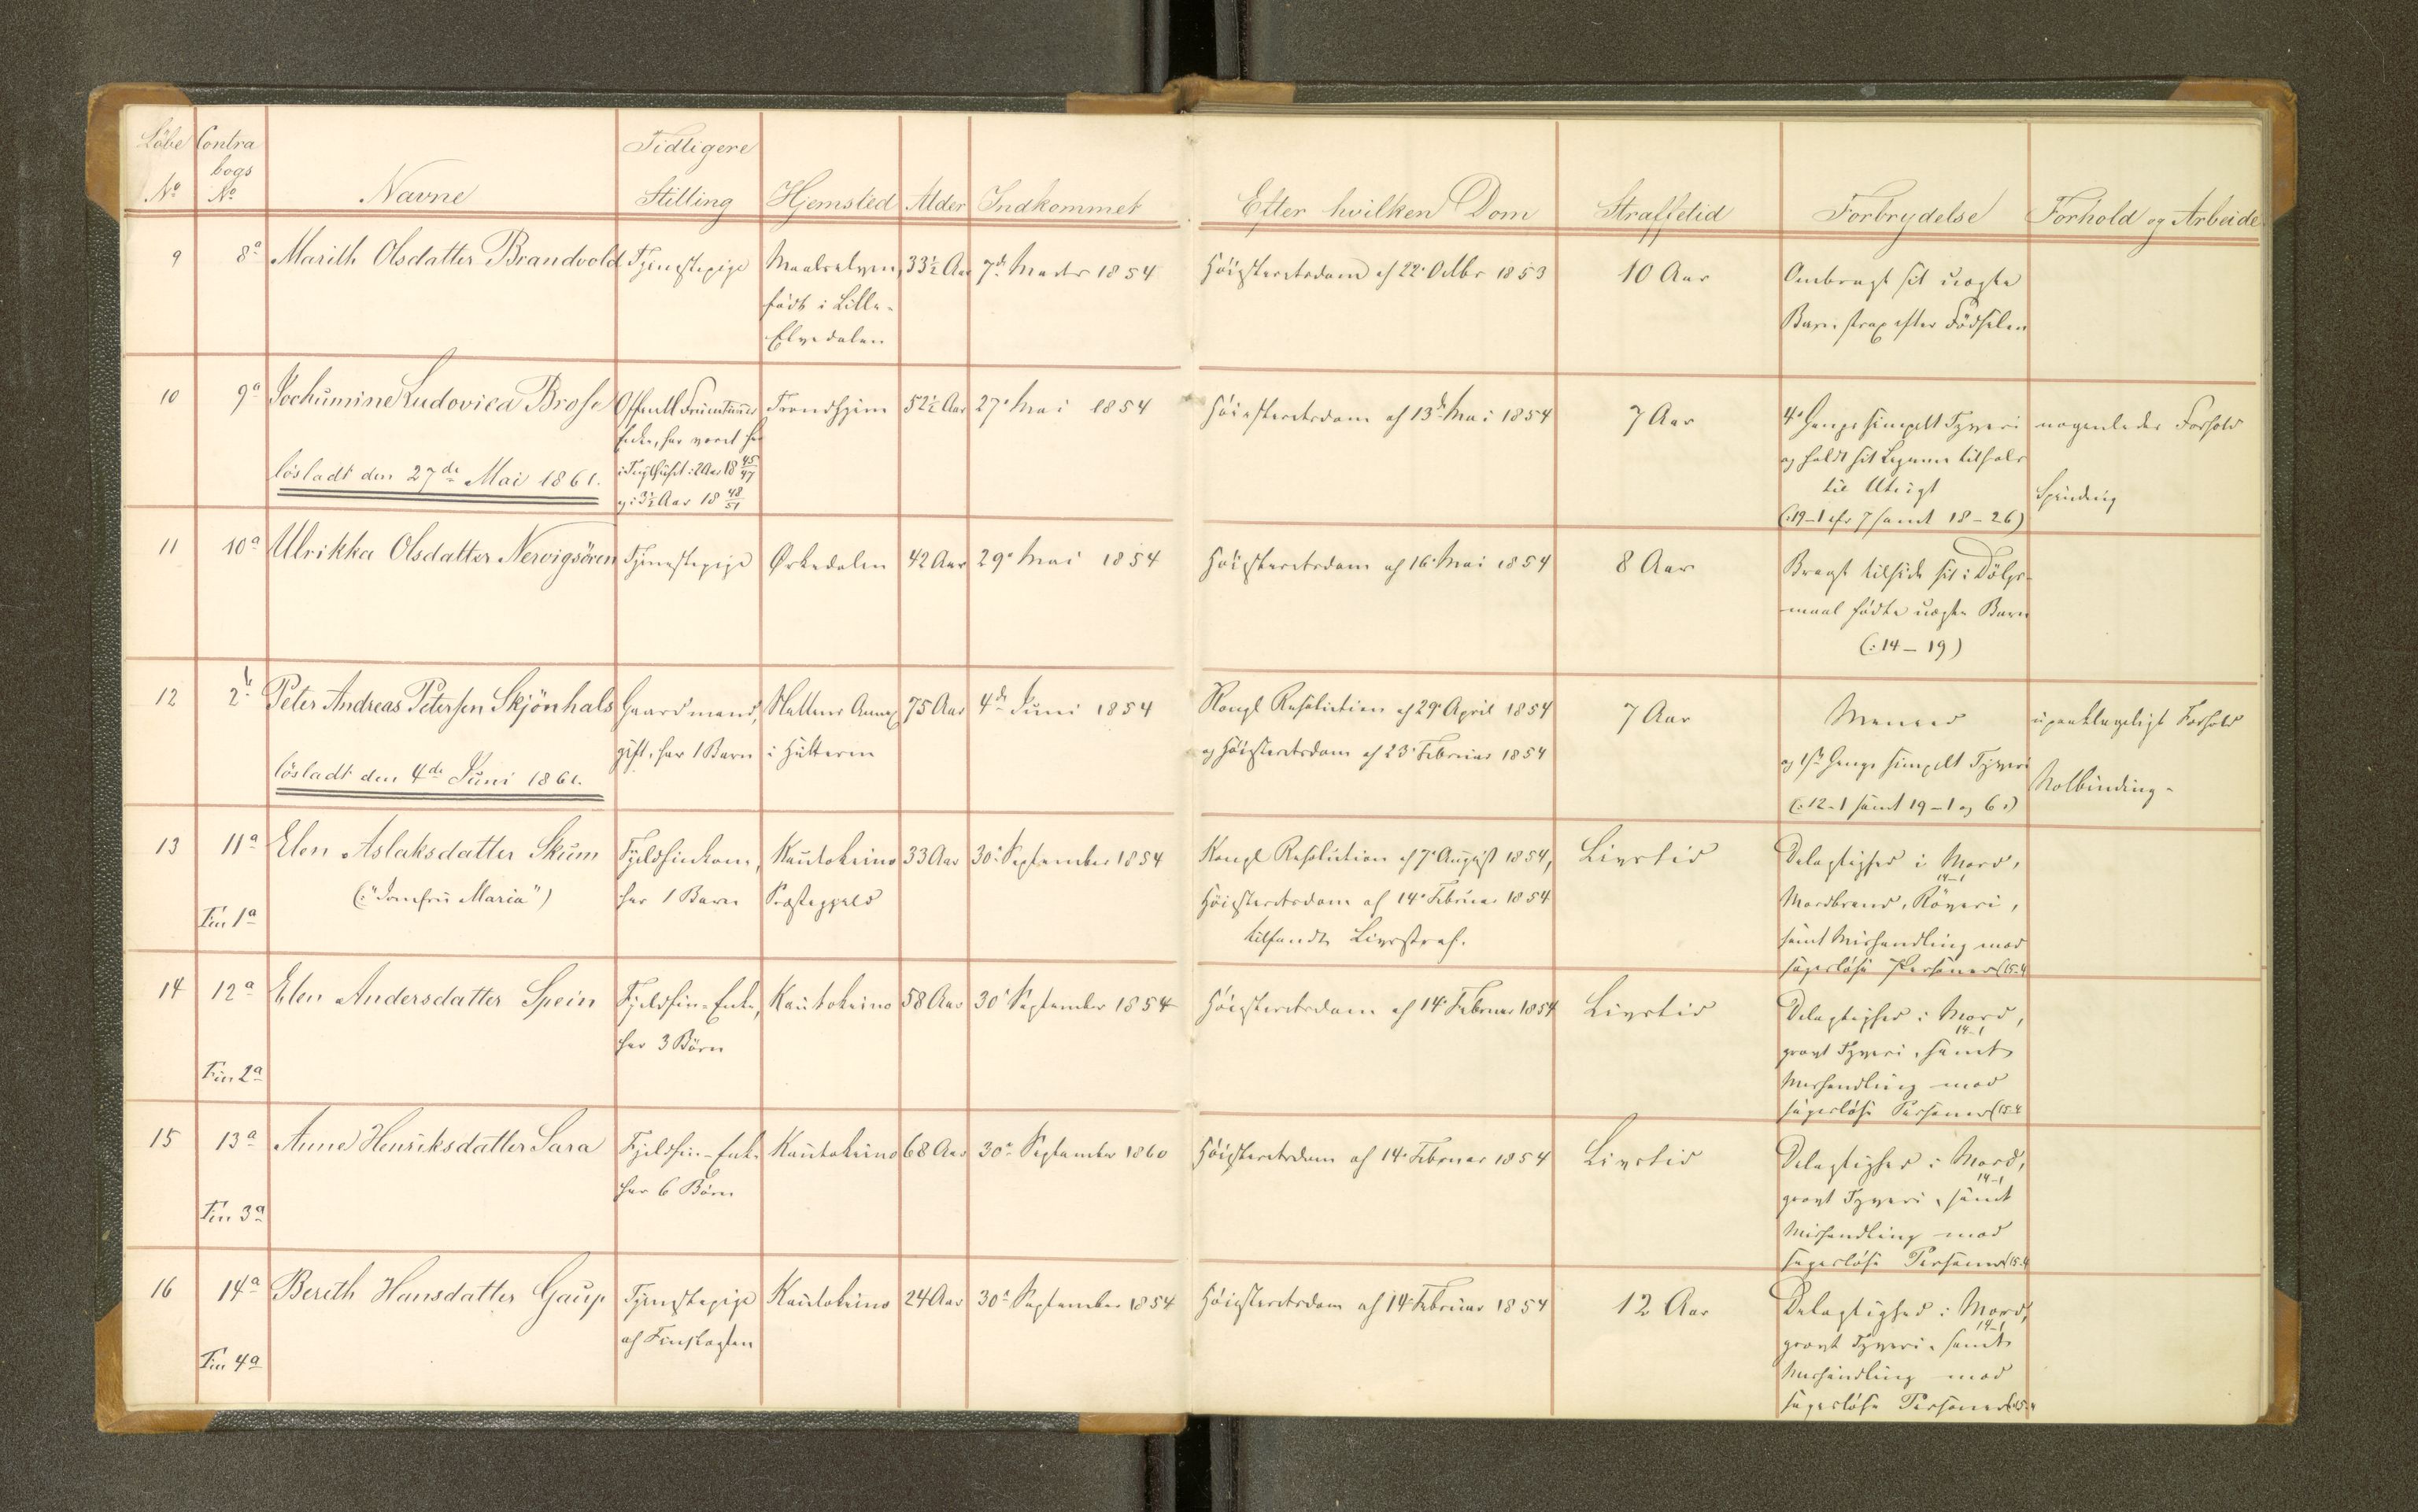 Löbe Contra Tidligere
bogs
No No Navne Stilling Hjemsted Alder Indkommet Efter hvilken Dom Straffetid Forbrydelse Forhold og Arbeide
9 8a Marith Olsdatter Brandvold Tjenestepige Maalselven, 33½ Aar 7de Marts 1854 Höiesteretsdom af 22. Octbr 1853 10 Aar Ombragt sit uægte
födt i Lille- Barn strax efter Födselen
Elvedalen
10 9a Jochumine Ludovica Brose Offentl Fruentimmer Trondhjem 52½ Aar 27. Mai 1854 Höiesteretsdom af 13de Mai 1854 7 Aar 4. Gange simpelt Tyveri nogenledes Forhold
Enke, har været her og holdt sit Legeme tilfals
i Tugthuset i 2 Aar 18 45/47 til Utugt Spinding
lösladt den 27de Mai 1861. og i 3½ Aar 18 48/51 (:19-1 cfr 7 samt 18-26)
11 10a Ulrikka Olsdatter Nervigsören Tjenestepige Örkedalen 42 Aar 29. Mai 1854 Höiesteretsdom af 16. Mai 1854 8 Aar Bragt tilside sit i Dölgs-
maal födte uægte Barn
(:14-19)
12 2b Peter Andreas Petersen Skjönhals Gaardmand, Slettens Annex 75 Aar 4de Juni 1854 Kongl Resolution af 29. April 1854 7 Aar Meneed upaaklageligt Forhold
gift, har 1 Barn i Hitteren og Höiesteretsdom af 23. Februar 1854 og 1ste Gang simpelt Tyveri
lösladt den 4de Juni 1861. (:12-1 samt 19-1 og 6:) Notbinding-
13 11a Elen Aslaksdatter Skum Fjeldfinkone, Kautokeino 33 Aar 30. September 1854 Kongl Resolution af 7. August 1854, Livstid Delagtighed i Mord,
14-1
(:"Jomfru Maria") har 1 Barn Præstegjeld Höiesteretsdom af 14. Februar 1854 Mordbrand, Röveri,
Fin 1a tilfundt Livsstraf. samt Mishandling mod
sagesløse Personer (15-4
14 12a Elen Andersdatter Spein Fjeldfin-Enke, Kautokeino 58 Aar 30. September 1854 Höiesteretsdom af 14. Februar 1854 Livstid Delagtighed i Mord,
14-1
har 3 Börn grovt Tyveri, samt
Fin 2a Mishandling mod
sagesløse Personer (15-4
15 13a Anne Henriksdatter Sara Fjeldfin-Enke Kautokeino 68 Aar 30. September 1860 Höiesteretsdom af 14. Februar 1854 Livstid Delagtighed i Mord,
14-1
har 6 Börn grovt Tyveri, samt
Fin 3a Mishandling mod
sagesløse Personer (15-4
16 14a Berith Hansdatter Gaup Tjenestepige Kautokeino 24 Aar 30. September 1854 Höiesteretsdom af 14. Februar 1854 12 Aar Delagtighed i Mord,
14-1
af Finslægten grovt Tyveri, samt
Fin 4a Mishandling mod
sagesløse Personer (15-4